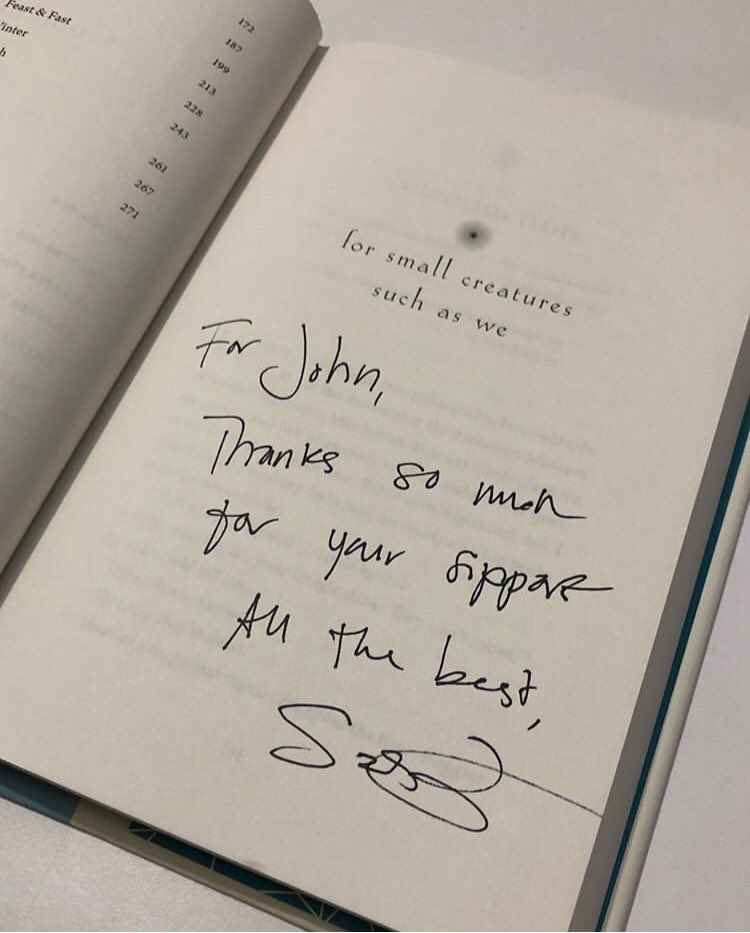 Feast & Fast 172
187
h 199
213
228
243
261
267
271
for small creatures
such as we
For John,
Thanks so much
for your support
All the best,